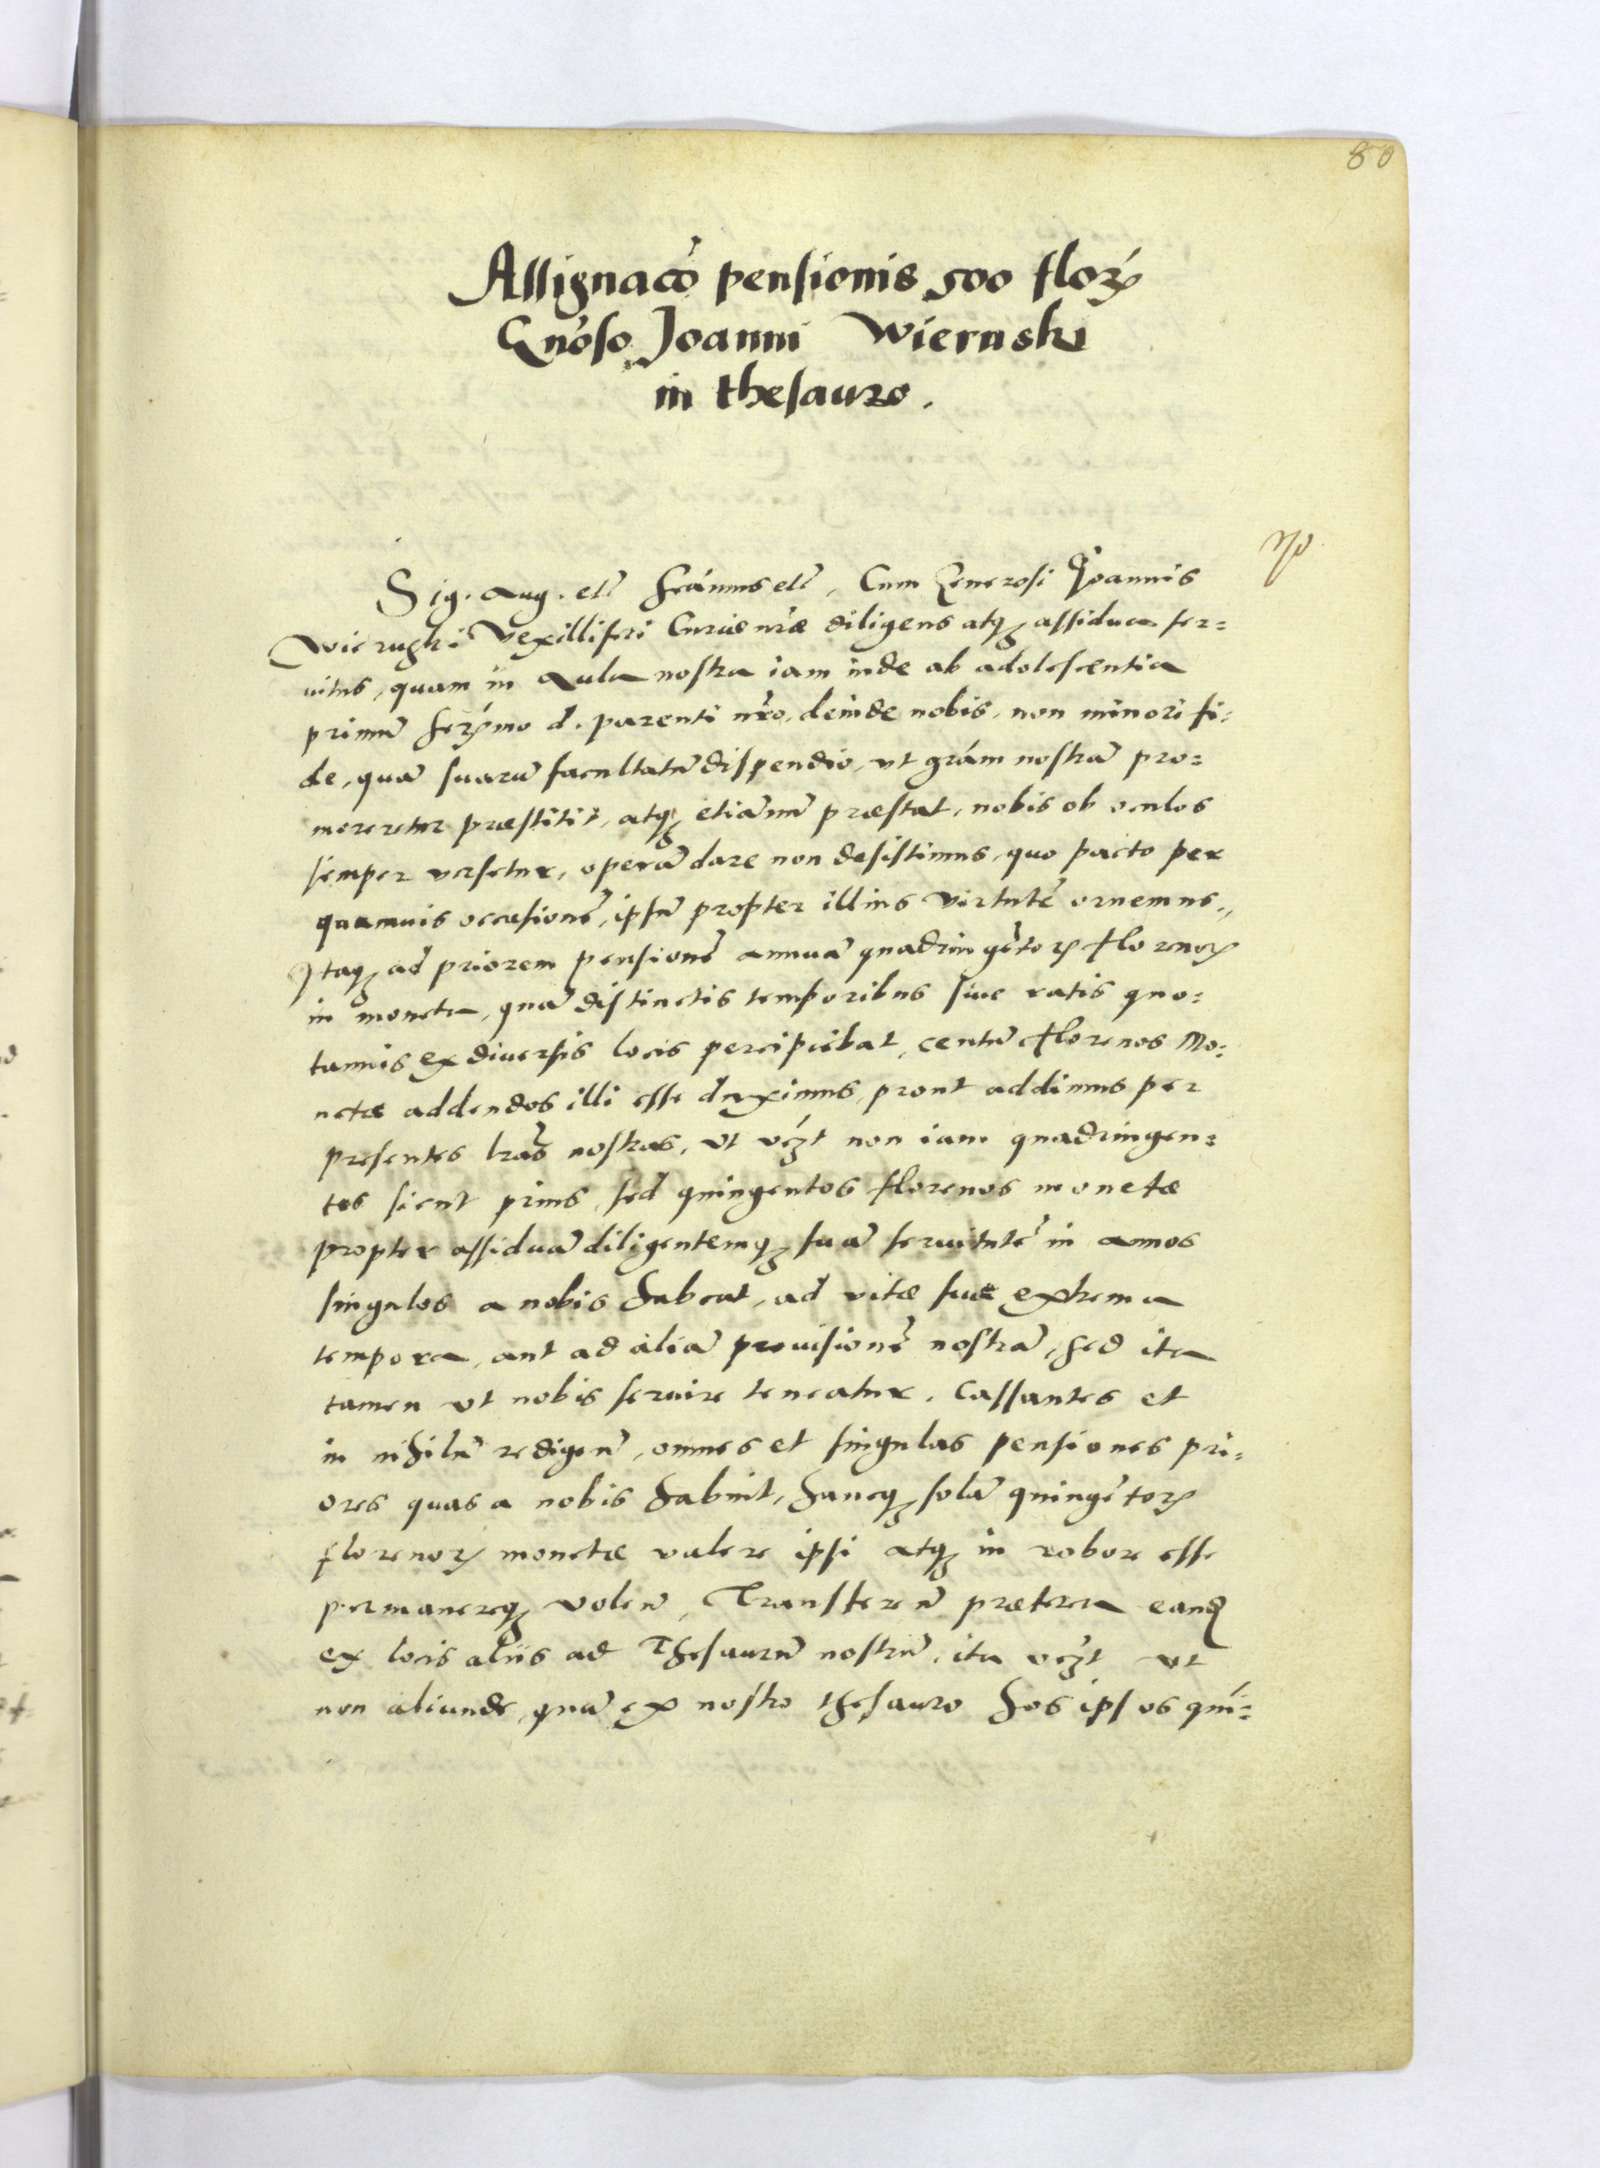 80
Assignaco͂ pensionis 500 floꝝ
Gn͂oso Joanni Wiernski
in thesauro.
Sig. Aug. etc̃ seãmus etc̃, Cum Generosi Joannis
Wierusski Vexilliferi Curiæ nr̃æ diligens atqꝫ assidua ser=
uitus, quam in Aula nostra iam inde ab adolescentia
primũ serẽmo d. parenti nr̃o, deinde nobis, non minori fi=
de, quã suarũ facultatũ dispendio, vt grãm nostrã pro=
mereretur præstitit, atqꝫ etiãnũ præstat, nobis ob oculos
semper versetur, operã dare non desistimus, quo pacto per
quamuis occasionẽ, ipsũ propter illius virtutẽ ornemus.,
Itaqꝫ ad priorem pensionẽ annuã quadringẽtoꝝ florenoꝝ
in moneta, quã distinctis temporibus siue ratis quo=
tannis ex diuersis locis percipiebat, centũ florenos Mo=
netæ addendos illi esse duximus, prout addimus per
presentes lr̃as nostras, vt vcꝫt non iam quadringen=
tos sicut prius, sed quingentos florenos monetæ
propter assiduã diligentemqꝫ suã seruitutẽ in annos
singulos a nobis habeat, ad vitæ suæ extrema
tempora, aut ad aliã prouisionẽ nostrã, sed ita
tamen vt nobis seruire teneatur. Cassantes et
in nihilũ redigeñ, omnes et singulas pensiones pri=
ores quas a nobis habuit, hancqꝫ solã quingẽtoꝝ
florenoꝝ monetæ valere ipsi atqꝫ in robore esse
permanereqꝫ voleñ, Transfereñ præterea eand̃
ex locis aliis ad Thesaurũ nostrũ, ita vcꝫt vt
non aliunde, quã ex nostro thesauro hos ipsos quí=